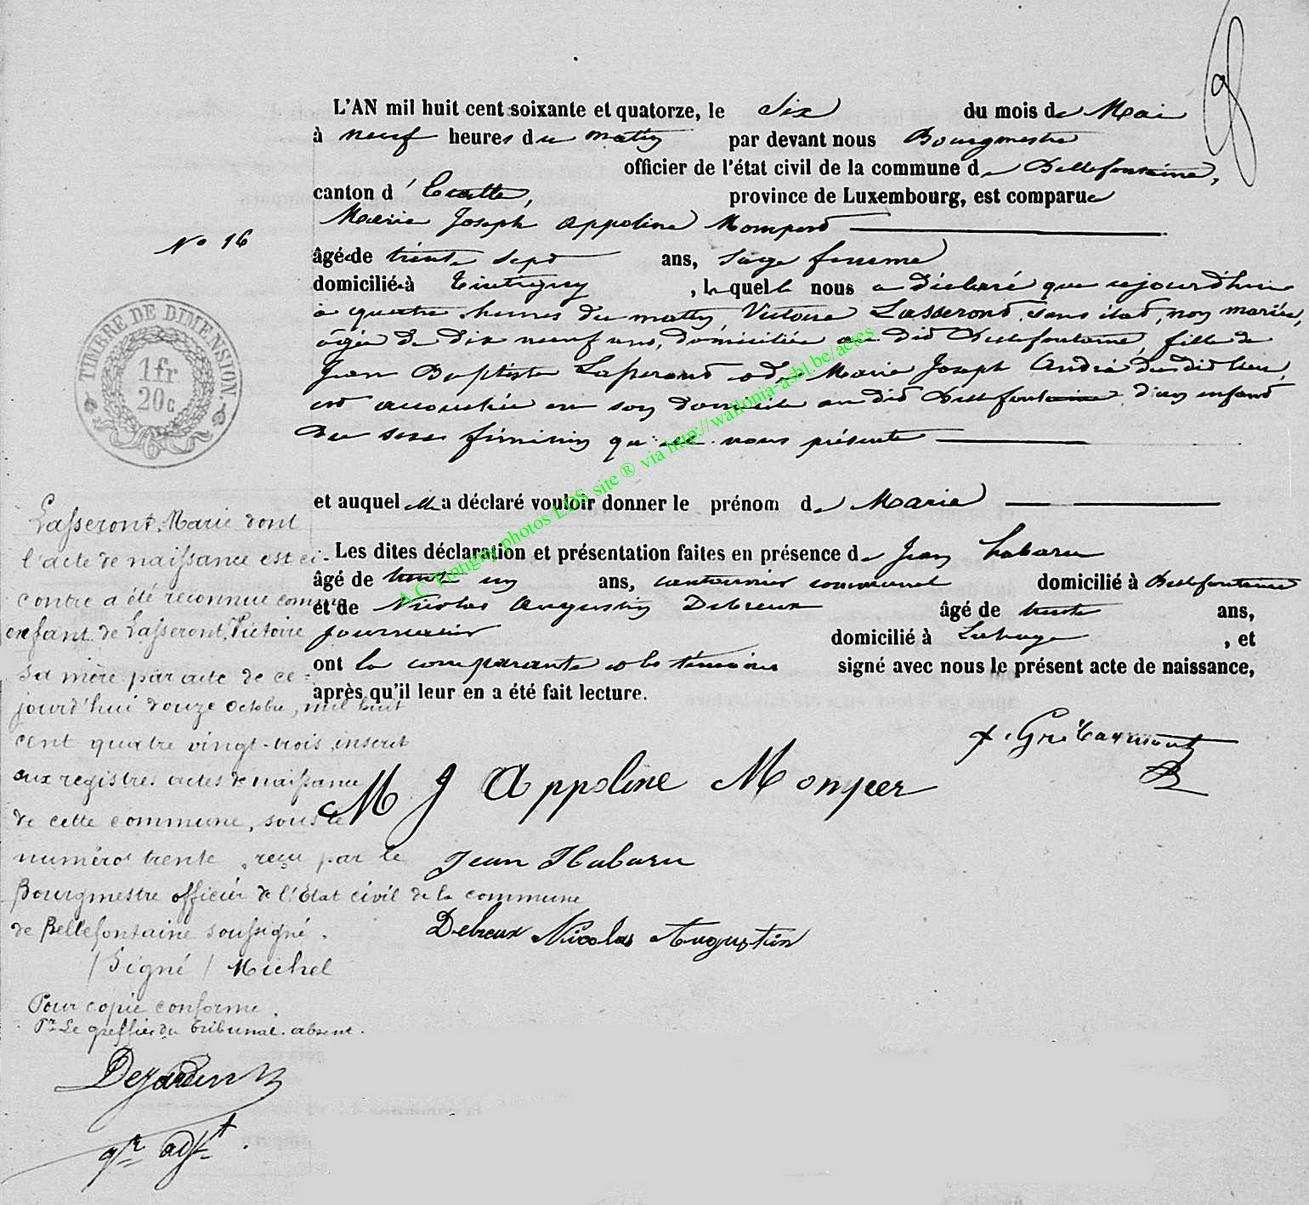 L'AN mil huit cent soixante et quatorze, le six du mois de Mai
à neuf heures du matin par devant nous Bourgmestre
officier de l'état civil de la commune de Bellefontaine,
canton d'Etalle, province de Luxembourg, est comparue
Marie Joseph Appoline Mompere
N° 16
âgée de trente sept ans, sage femme
domiciliée à Tintigny, laquelle nous a déclaré que cejourd'hui
à quatre heures du matin, Victoire Lasseront, sans état, non mariée,
âgée de dix neuf ans, domiciliée au dit Bellefontaine, fille de
Jean Baptiste Lasseront et de Marie Joseph André du dit lieu,
est accouchée en son domicile au dit Bellefontaine d'un enfant
du sexe féminin qu'elle nous présente
TIMBRE DE DIMENSION.
1fr
20c
et auquel elle a déclaré vouloir donner le prénom de Marie
Les dites déclaration et présentation faites en présence de Jean Habaru
âgé de trente un ans, cantonnier communal domicilié à Bellefontaine
et de Nicolas Augustin Debreux âgé de trente ans,
journalier domicilié à Lahage, et
ont la comparante et les témoins signé avec nous le présent acte de naissance,
après qu'il leur en a été fait lecture.
M J Appoline Momper
Jean Habaru
Debreux Nicolas Augustin
Lasseront, Marie dont
l'acte de naissance est ci-
contre a été reconnue comme
enfant de Lasseront, Victoire
sa mère par acte de ce=
jourd'hui douze octobre, mil huit
cent quatre vingt-trois inscrit
aux registres actes de naissance
de cette commune, sous le
numéro trente, reçu par le
Bourgmestre officier de l'Etat civil de la commune
de Bellefontaine soussigné.
(Signé) Michel
Pour copie conforme.
Pr Le greffier du tribunal absent.
Dejardin
gr adjt.
A.C. Tintigny photos EDS site ® via http://wallonia-asbl.be/actes